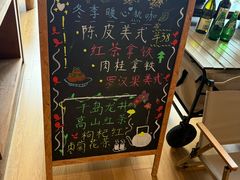 冬季暖心热咖
陈皮美式
红茶拿铁
肉桂拿铁
罗汉果美式
千岛龙井
高山红茶
枸杞红
菊花茶